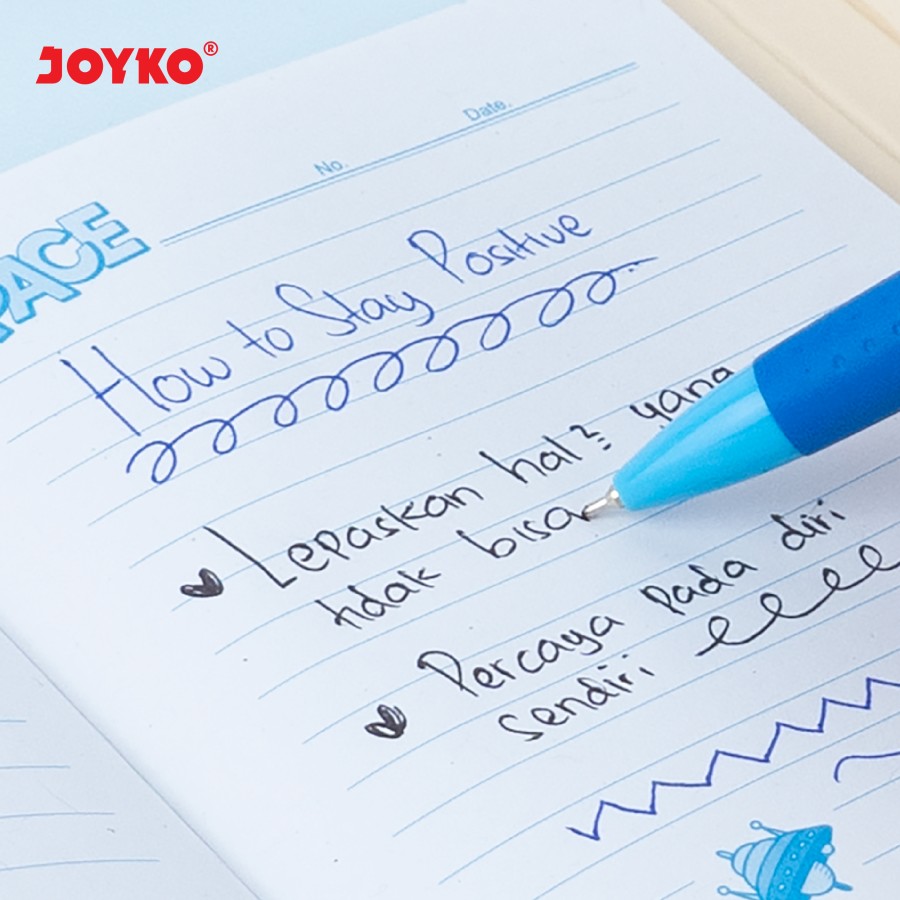 JOYKO®
Date.
No.
PACE
How to Stay Positive
Lepaskan hal² yang
tidak bisa
Percaya pada diri
sendiri